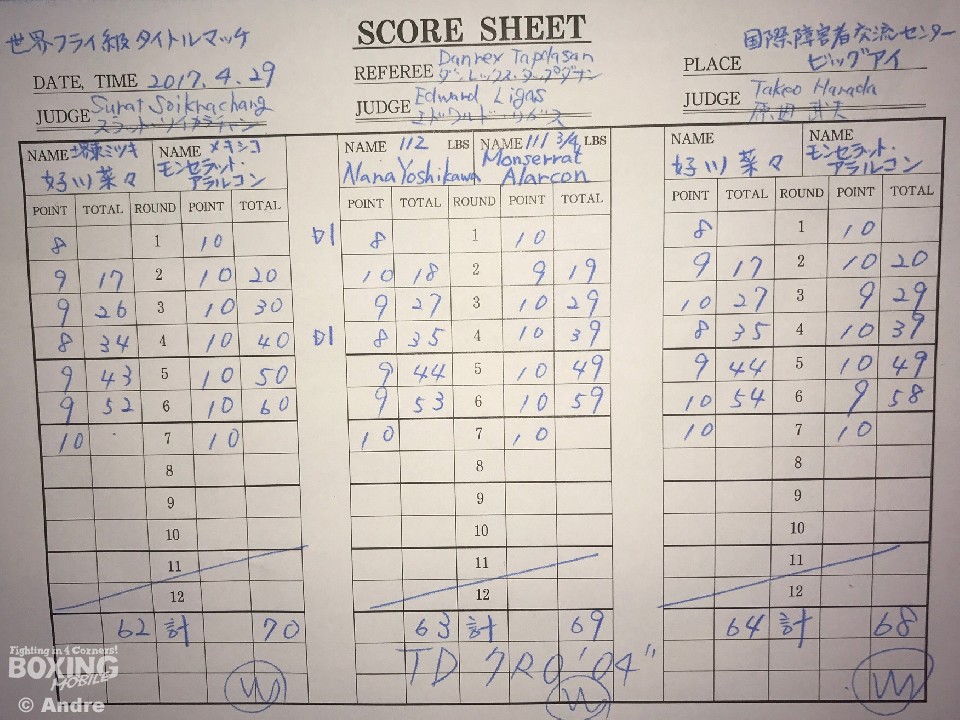 SCORE SHEET
世界フライ級タイトルマッチ
国際障害者交流センター
ビッグアイ
DATE, TIME 2017.4.29
REFEREE Danrex Tapdasan
ダンレックス・タップダサン
PLACE
JUDGE Surat Soikrachang
スラット・ソイカラチャン
JUDGE Edward Ligas
エドワルド・リガス
JUDGE Takeo Harada
原田 武夫
NAME 堺東ミツキ NAME メキシコ
好川菜々 モンセラット・アラルコン
NAME 112 LBS NAME 111 3/4 LBS
Nana Yoshikawa Monserrat Alarcon
NAME 好川菜々 NAME モンセラット・アラルコン
POINT TOTAL ROUND POINT TOTAL POINT TOTAL ROUND POINT TOTAL POINT TOTAL ROUND POINT TOTAL
8 1 10 8 1 10 8 1 10
9 17 2 10 20 10 18 2 9 19 9 17 2 10 20
9 26 3 10 30 9 27 3 10 29 10 27 3 9 29
8 34 4 10 40 8 35 4 10 39 8 35 4 10 39
9 43 5 10 50 9 44 5 10 49 9 44 5 10 49
9 52 6 10 60 9 53 6 10 59 10 54 6 9 58
10 7 10 10 7 10 10 7 10
8 8 8
9 9 9
10 10 10
11 11 11
12 12 12
62 計 70 63 計 69 64 計 68
TD 7R0'04"
Fighting in 4 Corners!
BOXING
MOBILE
© Andre